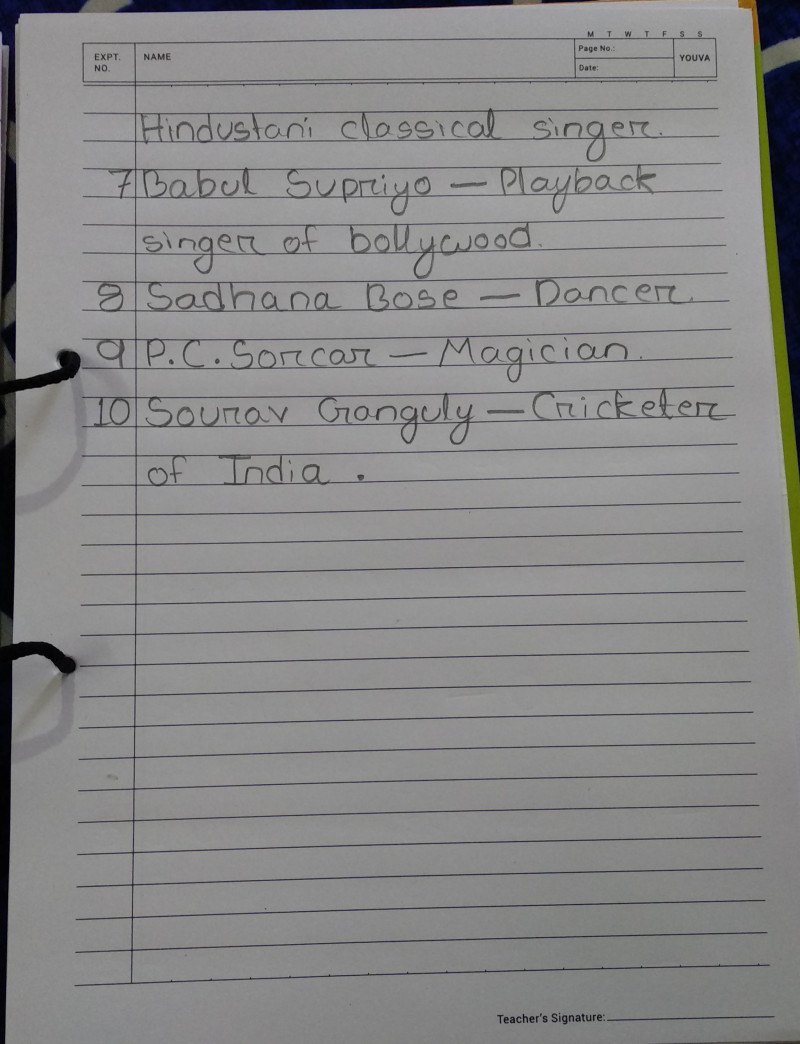 M T W T F S S
EXPT. NO. NAME Page No.: Date: YOUVA
Hindustani classical singer.
7 Babul Supriyo — Playback
singer of bollywood.
8 Sadhana Bose — Dancer.
9 P.C. Sorcar — Magician.
10 Sourav Ganguly — Cricketer
of India.
Teacher's Signature: